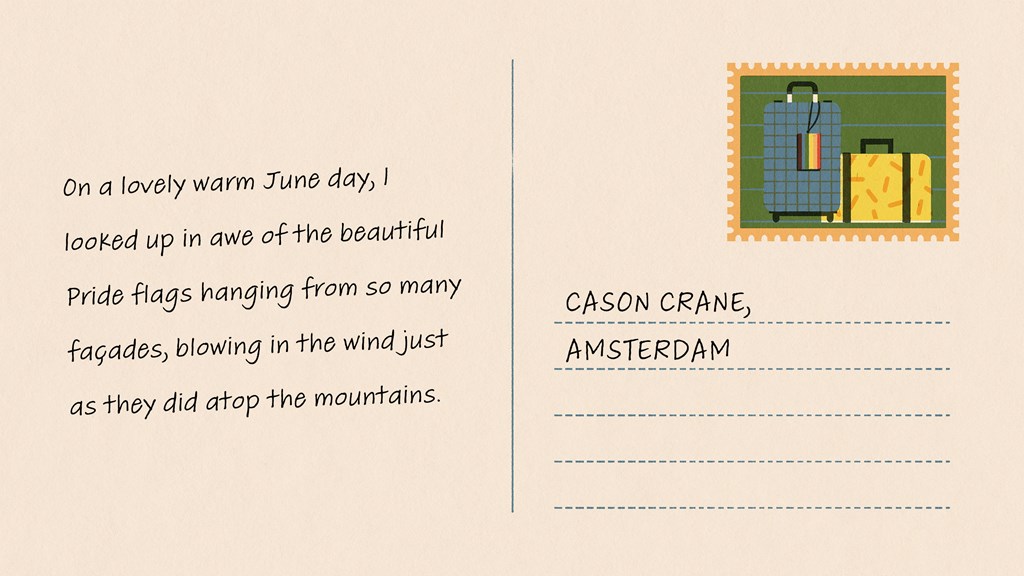 On a lovely warm June day, I
looked up in awe of the beautiful
Pride flags hanging from so many
façades, blowing in the wind just
as they did atop the mountains.
CASON CRANE,
AMSTERDAM